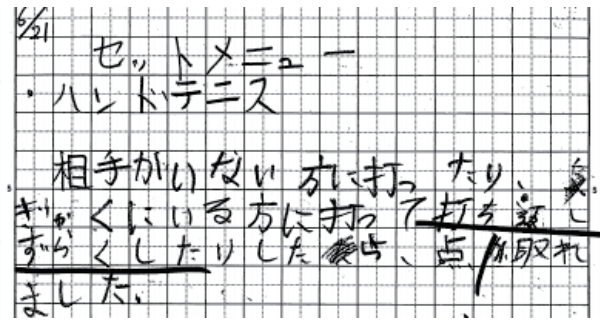 6/21
セットメニュー
・ハンドテニス
相手がいない方に打ったり、
くにいる方に打って打ち
ずらくしたりした、点 取れ
ました。